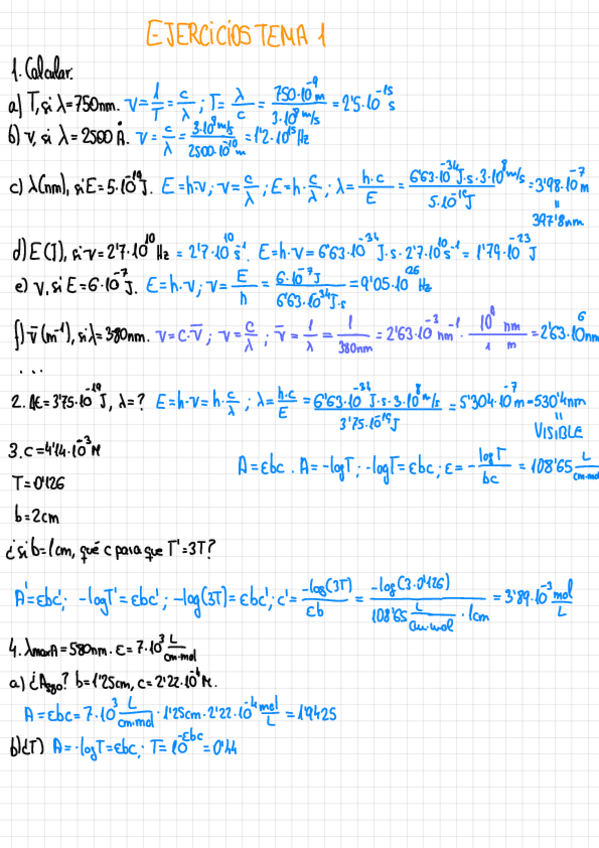 EJERCICIOS TEMA 1
1. Calcular.
a) T, si λ=750nm. ν = 1/T = c/λ ; T = λ/c = 750·10⁻⁹ m / 3·10⁸ m/s = 2'5·10⁻¹⁵ s
b) ν, si λ = 2500 Å. ν = c/λ = 3·10⁸ m/s / 2500·10⁻¹⁰ m = 1'2·10¹⁵ Hz
c) λ(nm), si E=5·10⁻¹⁹ J. E=h·ν; ν = c/λ ; E=h·c/λ ; λ = h·c/E = 6'63·10⁻³⁴ J·s·3·10⁸ m/s / 5·10⁻¹⁹ J = 3'98·10⁻⁷ m
=
397'8nm
d) E (J), si ν=2'7·10¹⁰ Hz = 2'7·10¹⁰ s⁻¹. E=h·ν = 6'63·10⁻³⁴ J·s·2'7·10¹⁰ s⁻¹ = 1'79·10⁻²³ J
e) ν, si E=6·10⁻⁷ J. E=h·ν; ν = E/h = 6·10⁻⁷ J / 6'63·10⁻³⁴ J·s = 9'05·10²⁶ Hz
f) ν̄ (m⁻¹), si λ=380nm. ν=c·ν̄ ; ν = c/λ ; ν̄ = 1/λ = 1/380nm = 2'63·10⁻³ nm⁻¹ · 10⁹ nm / 1 m = 2'63·10⁶ nm
...
2. ΔE=3'75·10⁻¹⁹ J, λ=? E=h·ν=h·c/λ ; λ = h·c/E = 6'63·10⁻³⁴ J·s·3·10⁸ m/s / 3'75·10⁻¹⁹ J = 5'304·10⁻⁷ m = 530'4nm
=
VISIBLE
3. c=4'14·10⁻³ M
A=εbc . A=-logT; -logT=εbc; ε = - logT/bc = 108'65 L/cm·mol
T=0'126
b=2cm
¿si b=1cm, qué c para que T'=3T?
A'=εbc'; -logT'=εbc'; -log(3T)=εbc'; c' = -log(3T)/εb = -log(3·0'126) / 108'65 L/cm·mol · 1cm = 3'89·10⁻³ mol/L
4. λmaxA=580nm. ε=7·10³ L/cm·mol
a) ¿A₅₈₀? b=1'25cm, c=2'22·10⁻⁴ M.
A=εbc=7·10³ L/cm·mol ·1'25cm·2'22·10⁻⁴ mol/L = 1'9425
b) ¿T? A=-logT=εbc; T=10^-εbc = 0'44